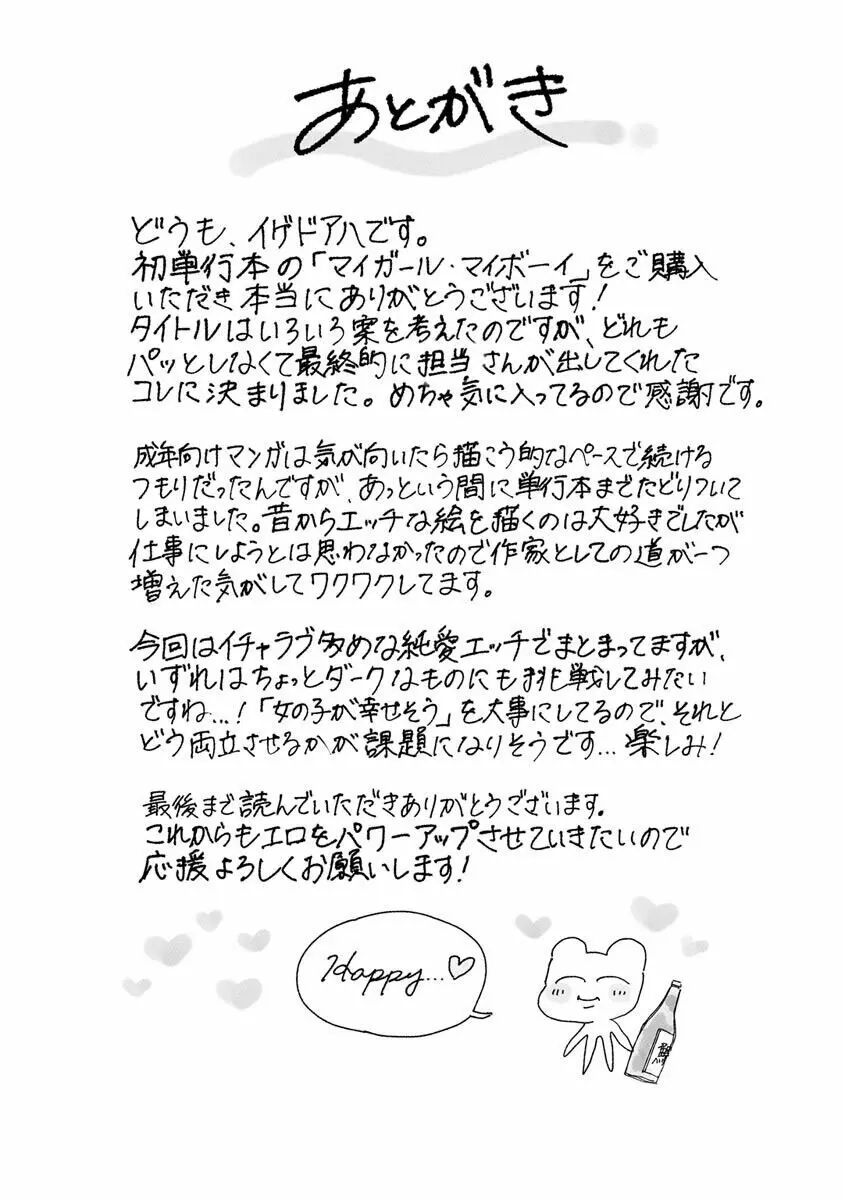 あとがき
どうも、イゲドアハです。
初単行本の「マイガール・マイボーイ」をご購入
いただき本当にありがとうございます！
タイトルはいろいろ案を考えたのですが、どれも
パッとしなくて最終的に担当さんが出してくれた
コレに決まりました。めちゃ気に入ってるので感謝です。
成年向けマンガは気が向いたら描こう的なペースで続ける
つもりだったんですが、あっという間に単行本までたどりついて
しまいました。昔からエッチな絵を描くのは大好きでしたが
仕事にしようとは思わなかったので作家としての道が一つ
増えた気がしてワクワクしてます。
今回はイチャラブ多めな純愛エッチでまとまってますが、
いずれはちょっとダークなものにも挑戦してみたい
ですね…！「女の子が幸せそう」を大事にしてるので、それと
どう両立させるかが課題になりそうです…楽しみ！
最後まで読んでいただきありがとうございます。
これからもエロをパワーアップさせていきたいので
応援よろしくお願いします！
Happy…♡